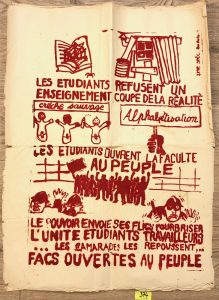 LES ETUDIANTS REFUSENT UN
ENSEIGNEMENT COUPE DE LA REALITE
crèche sauvage
Alphabétisation
LES ETUDIANTS OUVRENT LA FACULTE
AU PEUPLE
LE POUVOIR ENVOIE SES FLICS POUR BRISER
L'UNITE ETUDIANTS TRAVAILLEURS
... LES CAMARADES LES REPOUSSENT...
FACS OUVERTES AU PEUPLE